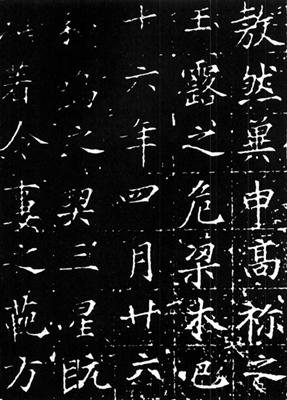 然冀申高祢之
玉露之危梁木
十六年四月廿六
之契三星既
若令妻之範方